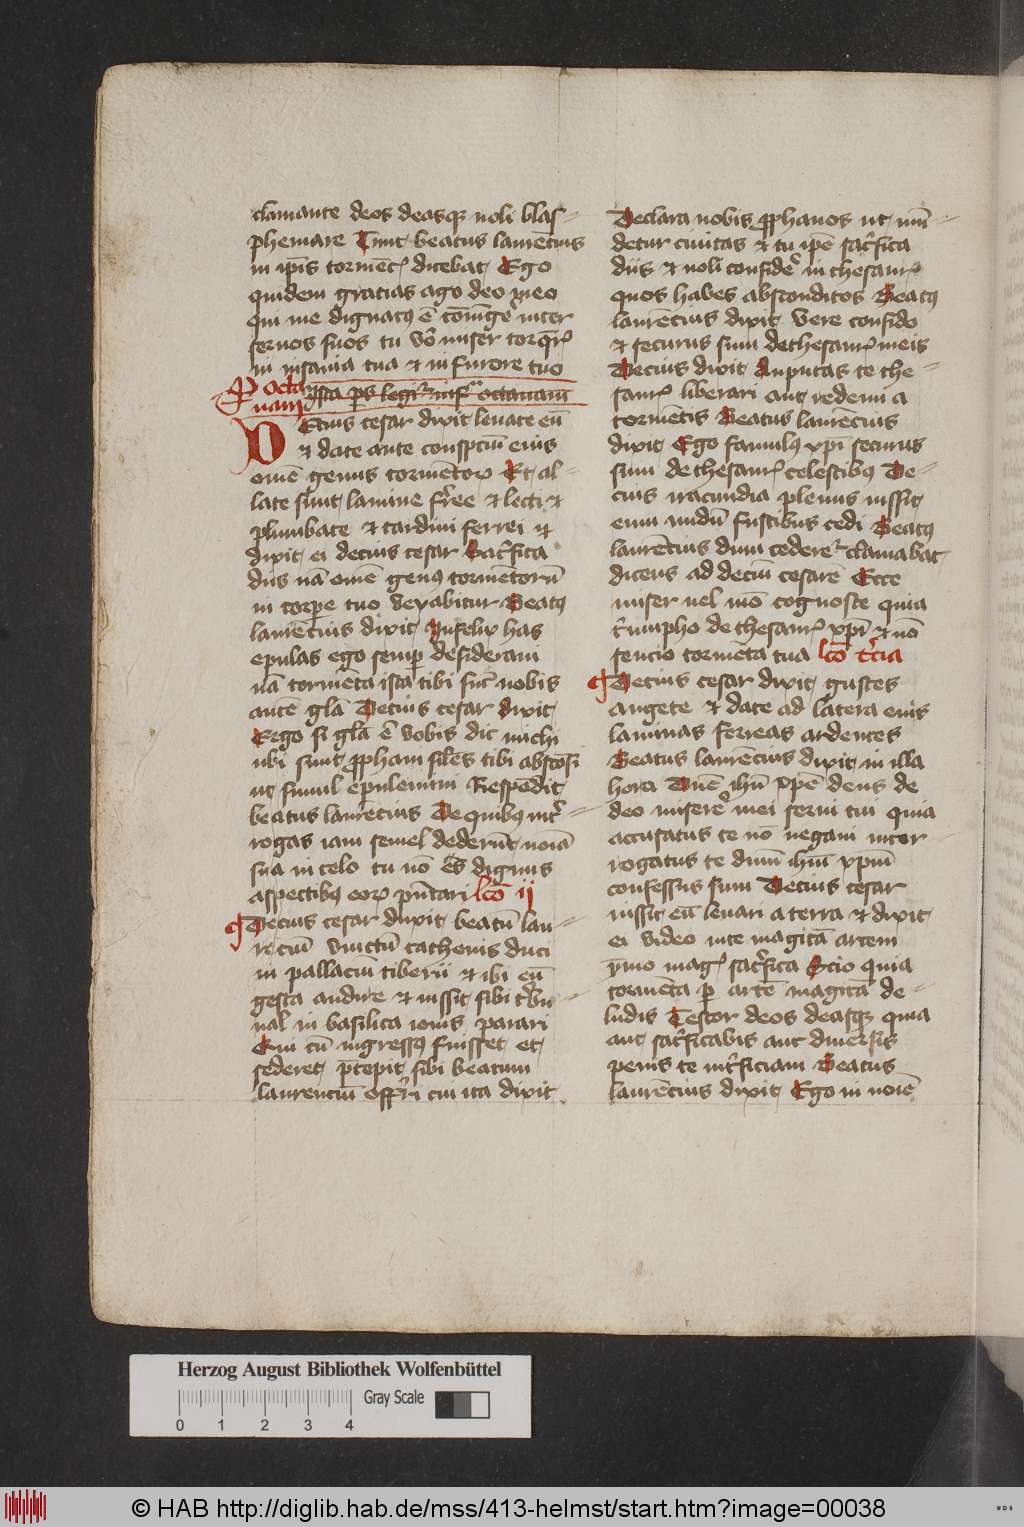 clamante deos deasq; noli blas=
phemare Tunc beatus laurēcius
in ip̄is tormēt᷑ dicebat Ego
quidem gracias ago deo meo
qui me dignatꝯ ē cōiūge inter
seruos suos tu vō miser torq̄r᷑
in insania tua et in furore tuo
P octa
uam
Ista p̄s legit᷑ infra octauam
DEcius cesar dixit leuate eū
et date ante conspcūm eius
omē genus tormētoꝝ Et al=
late sunt lamine ferree et lecti et
plumbate et cardini ferrei et
dixit ei decius cesar Sac̓fica
diis nā omē genꝯ tormētorū
in corpe tuo vexabitur Beatꝯ
laurēcius dixit Infelix has
epulas ego semp̱ desideraui
nā tormēta ista tibi sūt nobis
autē glā Decius cesar dixit
Eego si glā ē vobis dic michi
ubi sunt p̱phani sil̓es tibi abscōsi
ut simul epulemini Respōdit
beatus laurēcius De quibꝯ int̓=
rogas iam semel dederūt noīa
sua in celo tu nō es dignus
aspectibꝯ eoꝝ p̄ntari lcō ii
¶ Decius cesar duxit beatū lau=
rēciū vinctū cathenis duci
in pallaciū tiberii et ibi eū
gesta audire et iussit sibi t̓bu=
nal in basilica iouis parari
Qui cū ingressꝯ fuisset et
sederet p̄cepit sibi beatum
laurenciū offerri cui ita dixit
Declara nobis p̱phanos ut mū=
detur ciuitas et tu ip̄e sac̓fica
diis et noli confider̓ in thesaur᷑
quos habes absconditos Beatꝯ
laurēcius dixit Vere confido
et securus sum de thesaur᷑ meis
Decius dixit An putas te the=
saur᷑ liberari aut redemi a
tormētis Beatus laurēcius
dixit Ego famulꝯ xp̄i securus
sum de thesaur᷑ celestibꝯ De=
cius iracundia plenus iussit
eum nudū fustibus cedi Beatꝯ
laurēcius dum ceder̓et᷑ clamabat
dicens ad deciū cesarē Ecce
miser uel mō cognosce quia
t̓umpho de thesaur᷑ xp̄i et nō
sencio tormēta tua lcō t̓cia
¶ Decius cesar dixit fustes
augete et date ad latera eius
laminas ferreas ardentes
Beatus laurēcius dixit in illa
hora Dn̄e ihū xp̄e deus de
deo miserer̓e mei serui tui quia
accusatus te nō negaui inter=
rogatus te dn̄m ihm̄ xp̄m
confessus sum Decius cesar
iussit eū leuari a terra et dixit
ei video in te magicā artem
p̄mo mag᷑ sac̓fica Scio quia
tormēta p̱ artē magicā de=
ludis Testor deos deasq; quia
aut sac̓ficabis aut diuersis
penis te int̓ficiam Beatus
laurēcius dixit Ego in noīe
Herzog August Bibliothek Wolfenbüttel
Gray Scale
0 1 2 3 4
© HAB http://diglib.hab.de/mss/413-helmst/start.htm?image=00038